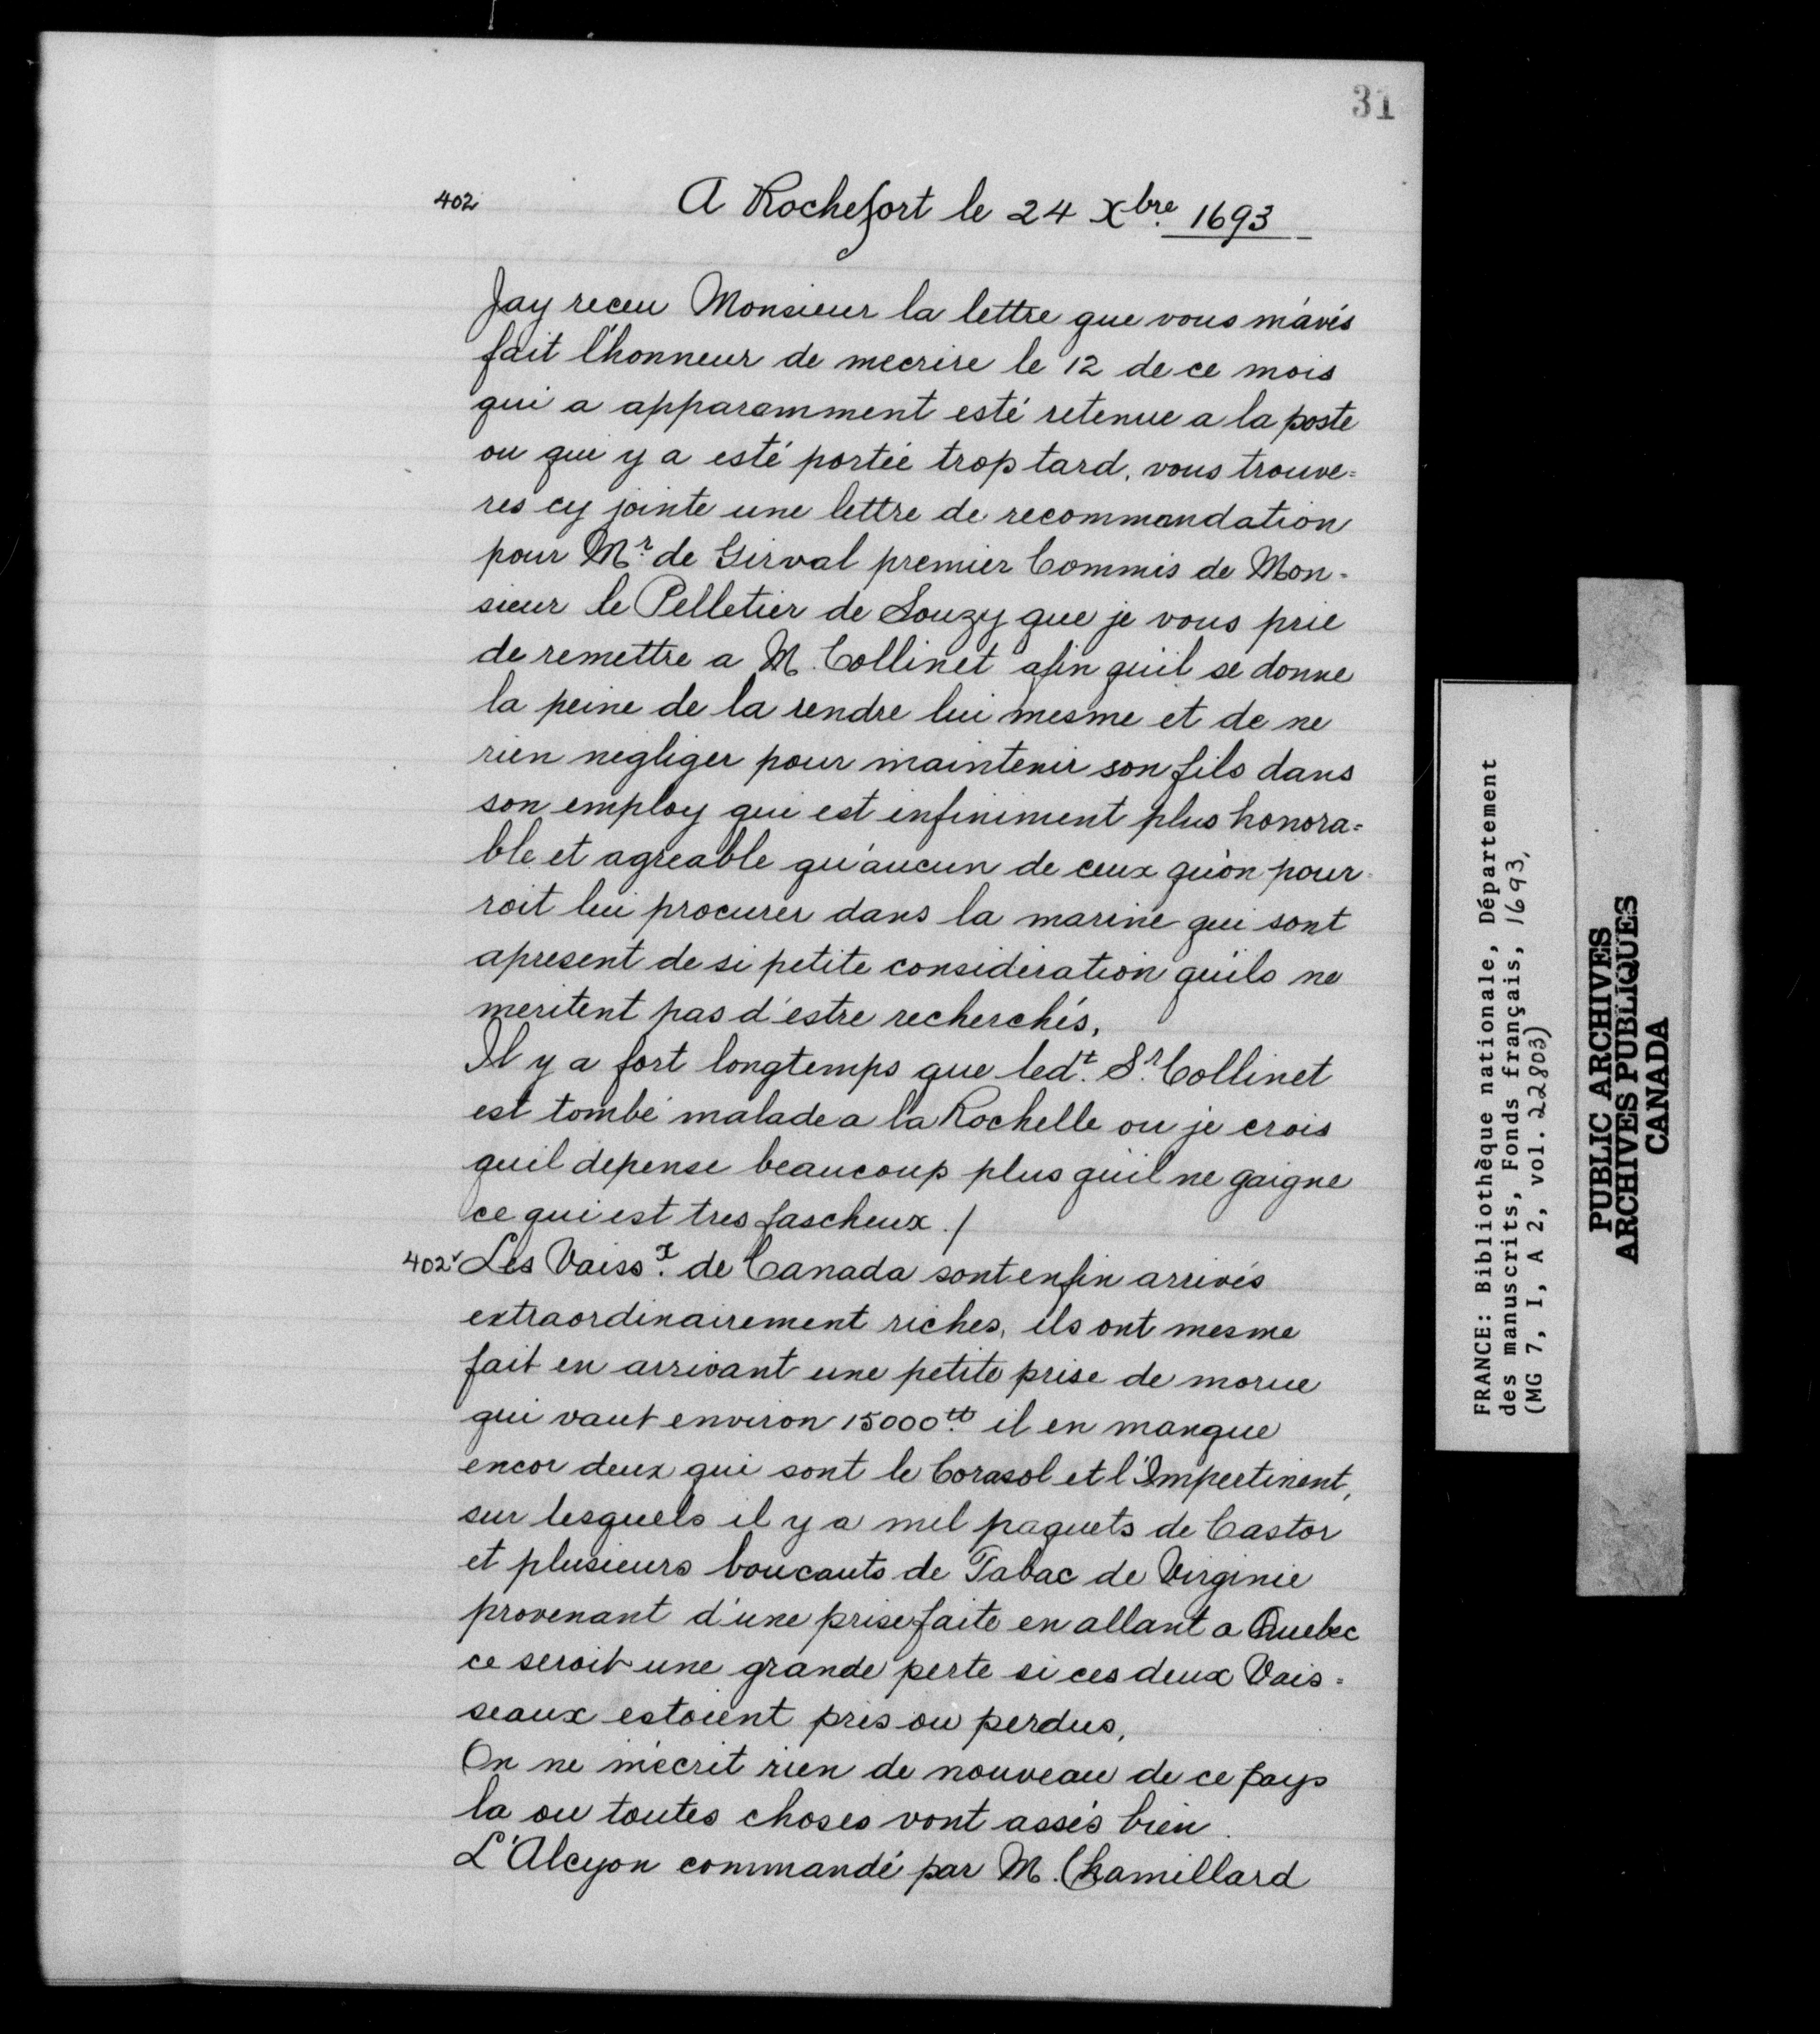 31
402
A Rochefort le 24 Xbre. 1693
Jay receu Monsieur la lettre que vous m'avés
fait l'honneur de mecrire le 12 de ce mois
qui a apparamment esté retenue a la poste
ou qui y a esté portée trop tard, vous trouve=
res cy jointe une lettre de recommandation
pour Mr. de Girval premier Commis de Mon=
sieur le Pelletier de Souzy que je vous prie
de remettre a M. Collinet afin qu'il se donne
la peine de la rendre lui mesme et de ne
rien negliger pour maintenir son fils dans
son employ qui est infiniment plus honora=
ble et agreable qu'aucun de ceux qu'on pour=
roit lui procurer dans la marine qui sont
apresent de si petite consideration qu'ils ne
meritent pas d'estre recherchés,
Il y a fort longtemps que ledt. Sr. Collinet
est tombé malade a la Rochelle ou je crois
quil depense beaucoup plus qu'il ne gaigne
ce qui est tres fascheux./
402v Les Vaissx. de Canada sont enfin arrivés
extraordinairement riches, ils ont mesme
fait en arrivant une petite prise de morue
qui vaut environ 15000tt. il en manque
encor deux qui sont le Corasol et l'Impertinent,
sur lesquels il y a mil paquets de Castor
et plusieurs boucauts de Tabac de Virginie
provenant d'une prise faite en allant a Quebec
ce seroit une grande perte si ces deux Vais=
seaux estoient pris ou perdus,
On ne m'ecrit rien de nouveau de ce pays
la ou toutes choses vont assés bien.
L'Alcyon commandé par M. Chamillard
FRANCE: Bibliothèque nationale, Département
des manuscrits, Fonds français, 1693,
(MG 7, I, A 2, vol. 22803)
PUBLIC ARCHIVES
ARCHIVES PUBLIQUES
CANADA